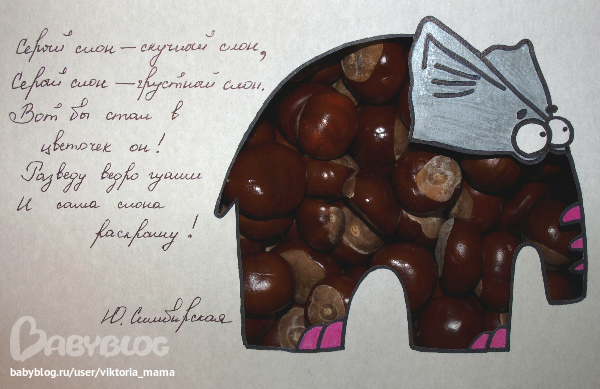 Серый слон — скучный слон,
Серый слон — грустный слон.
Вот бы стал в
цветочек он!
Разведу ведро гуаши
И сама слона
раскрашу!
Ю. Симбирская
BABYBLOG
babyblog.ru/user/viktoria_mama